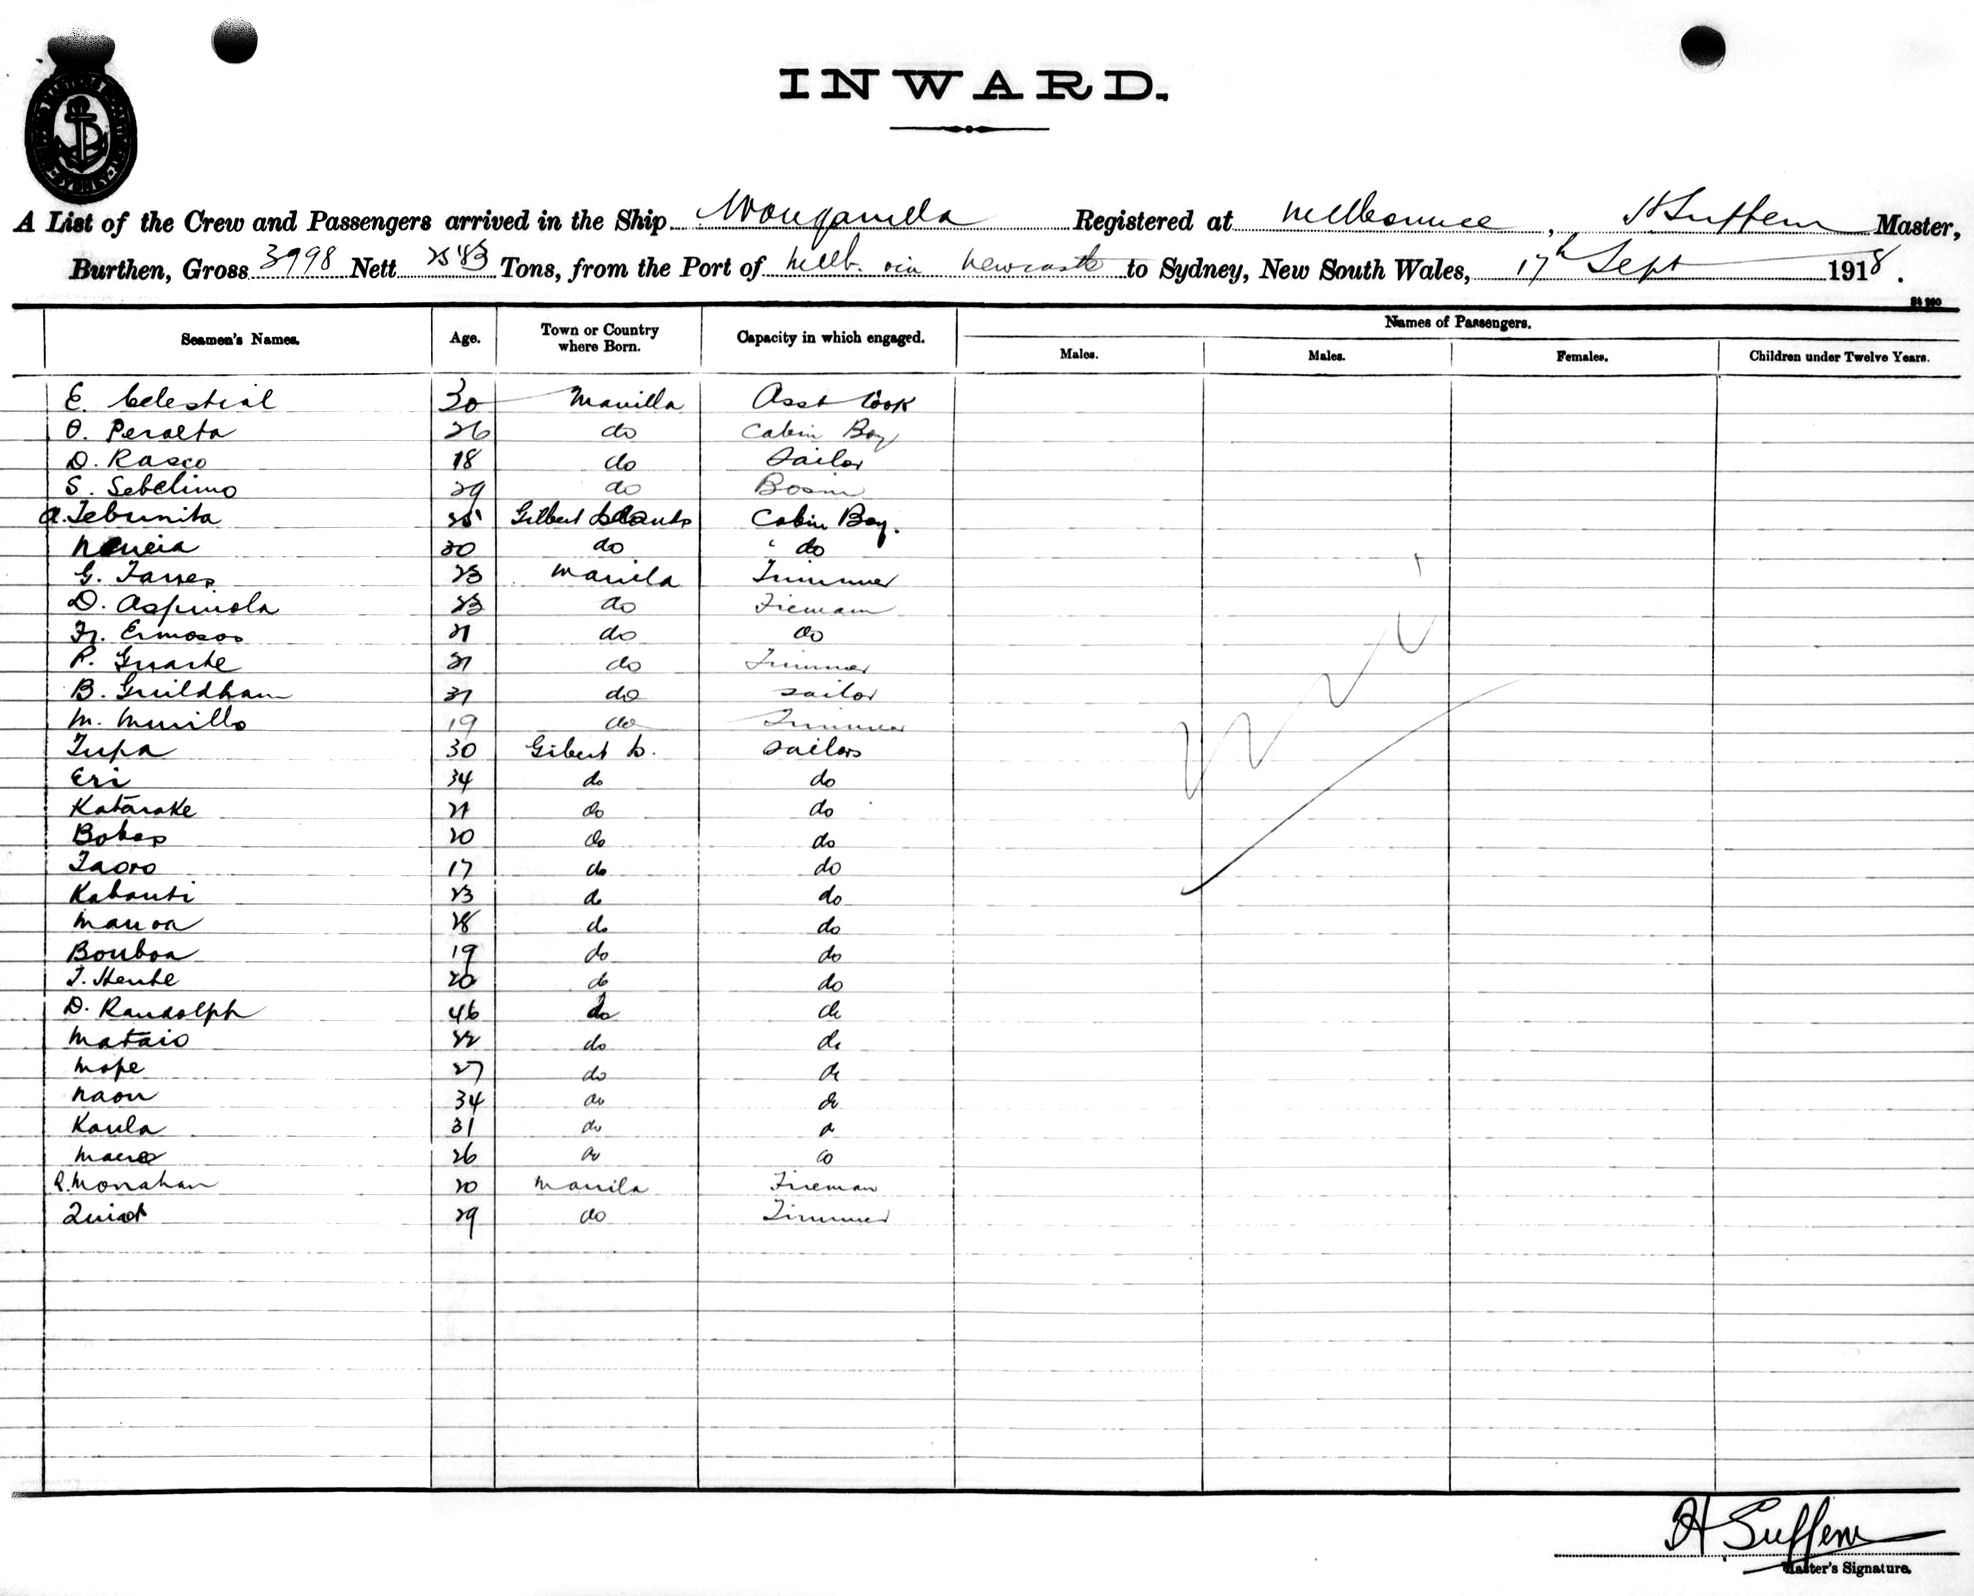 INWARD.
A List of the Crew and Passengers arrived in the Ship Wonganella Registered at Melbourne, H Suffern Master,
Burthen, Gross 3998 Nett 2543 Tons, from the Port of Melb. via Newcastle to Sydney, New South Wales, 17th Sept 1918.
Seamen's Names. Age. Town or Country where Born. Capacity in which engaged. Names of Passengers.
Males. Males. Females. Children under Twelve Years.
E. Celestial 30 Manilla Asst Cook
O. Peralta 26 do Cabin Boy
D. Rasco 18 do Sailor
S. Sebelino 29 do Bosun
A. Tebunita 25 Gilbert Islands Cabin Boy.
30 do " do
G. Tarres 23 Manila Trimmer
D. Aspinola 23 do Fireman
Fr. Ermosos 21 do do
P. Guarte 21 do Trimmer
B. Guildham 31 do Sailor
M. Murillo 19 do Trimmer
Tupa 30 Gibert Is. Sailors
Eri 34 do do
Katarake 21 do do
Bokas 20 do do
Taoro 17 do do
Kabauti 23 do do
Manoa 28 do do
Bouboa 19 do do
T. Hente 20 do do
D. Randolph 46 do do
Mataio 22 do do
Mope 27 do do
Naon 34 do do
Kaula 31 do do
26 do do
R. Monahan 20 Manila Fireman
29 do Trimmer
Nil
H Suffern
Master's Signature.